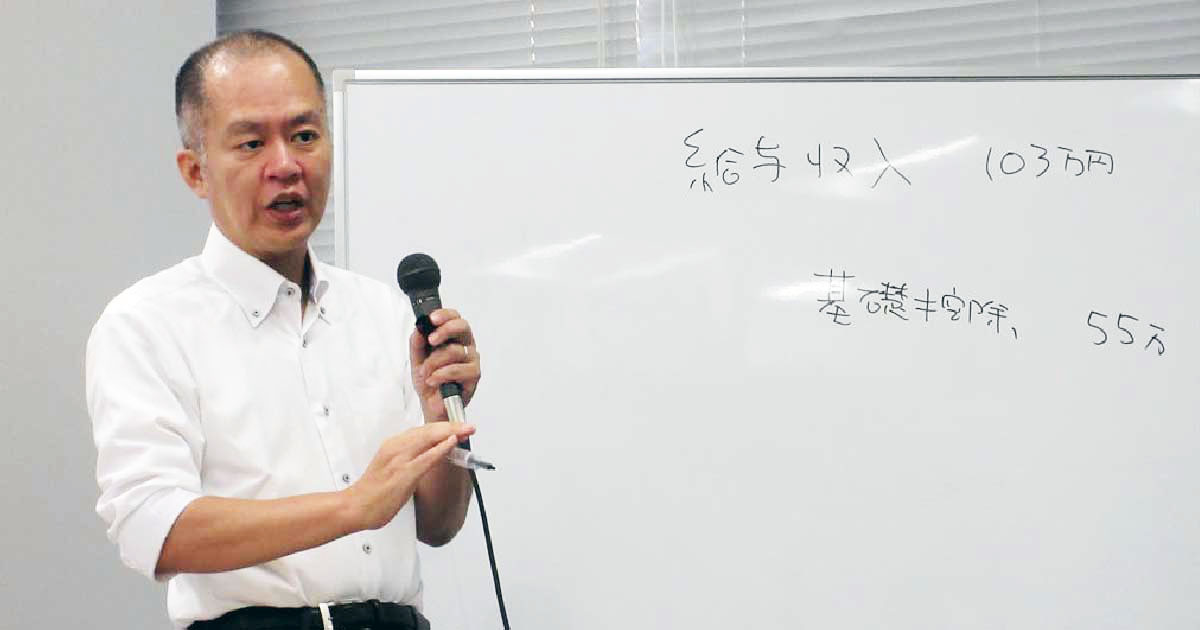 給与収入 103万円
基礎控除、 55万